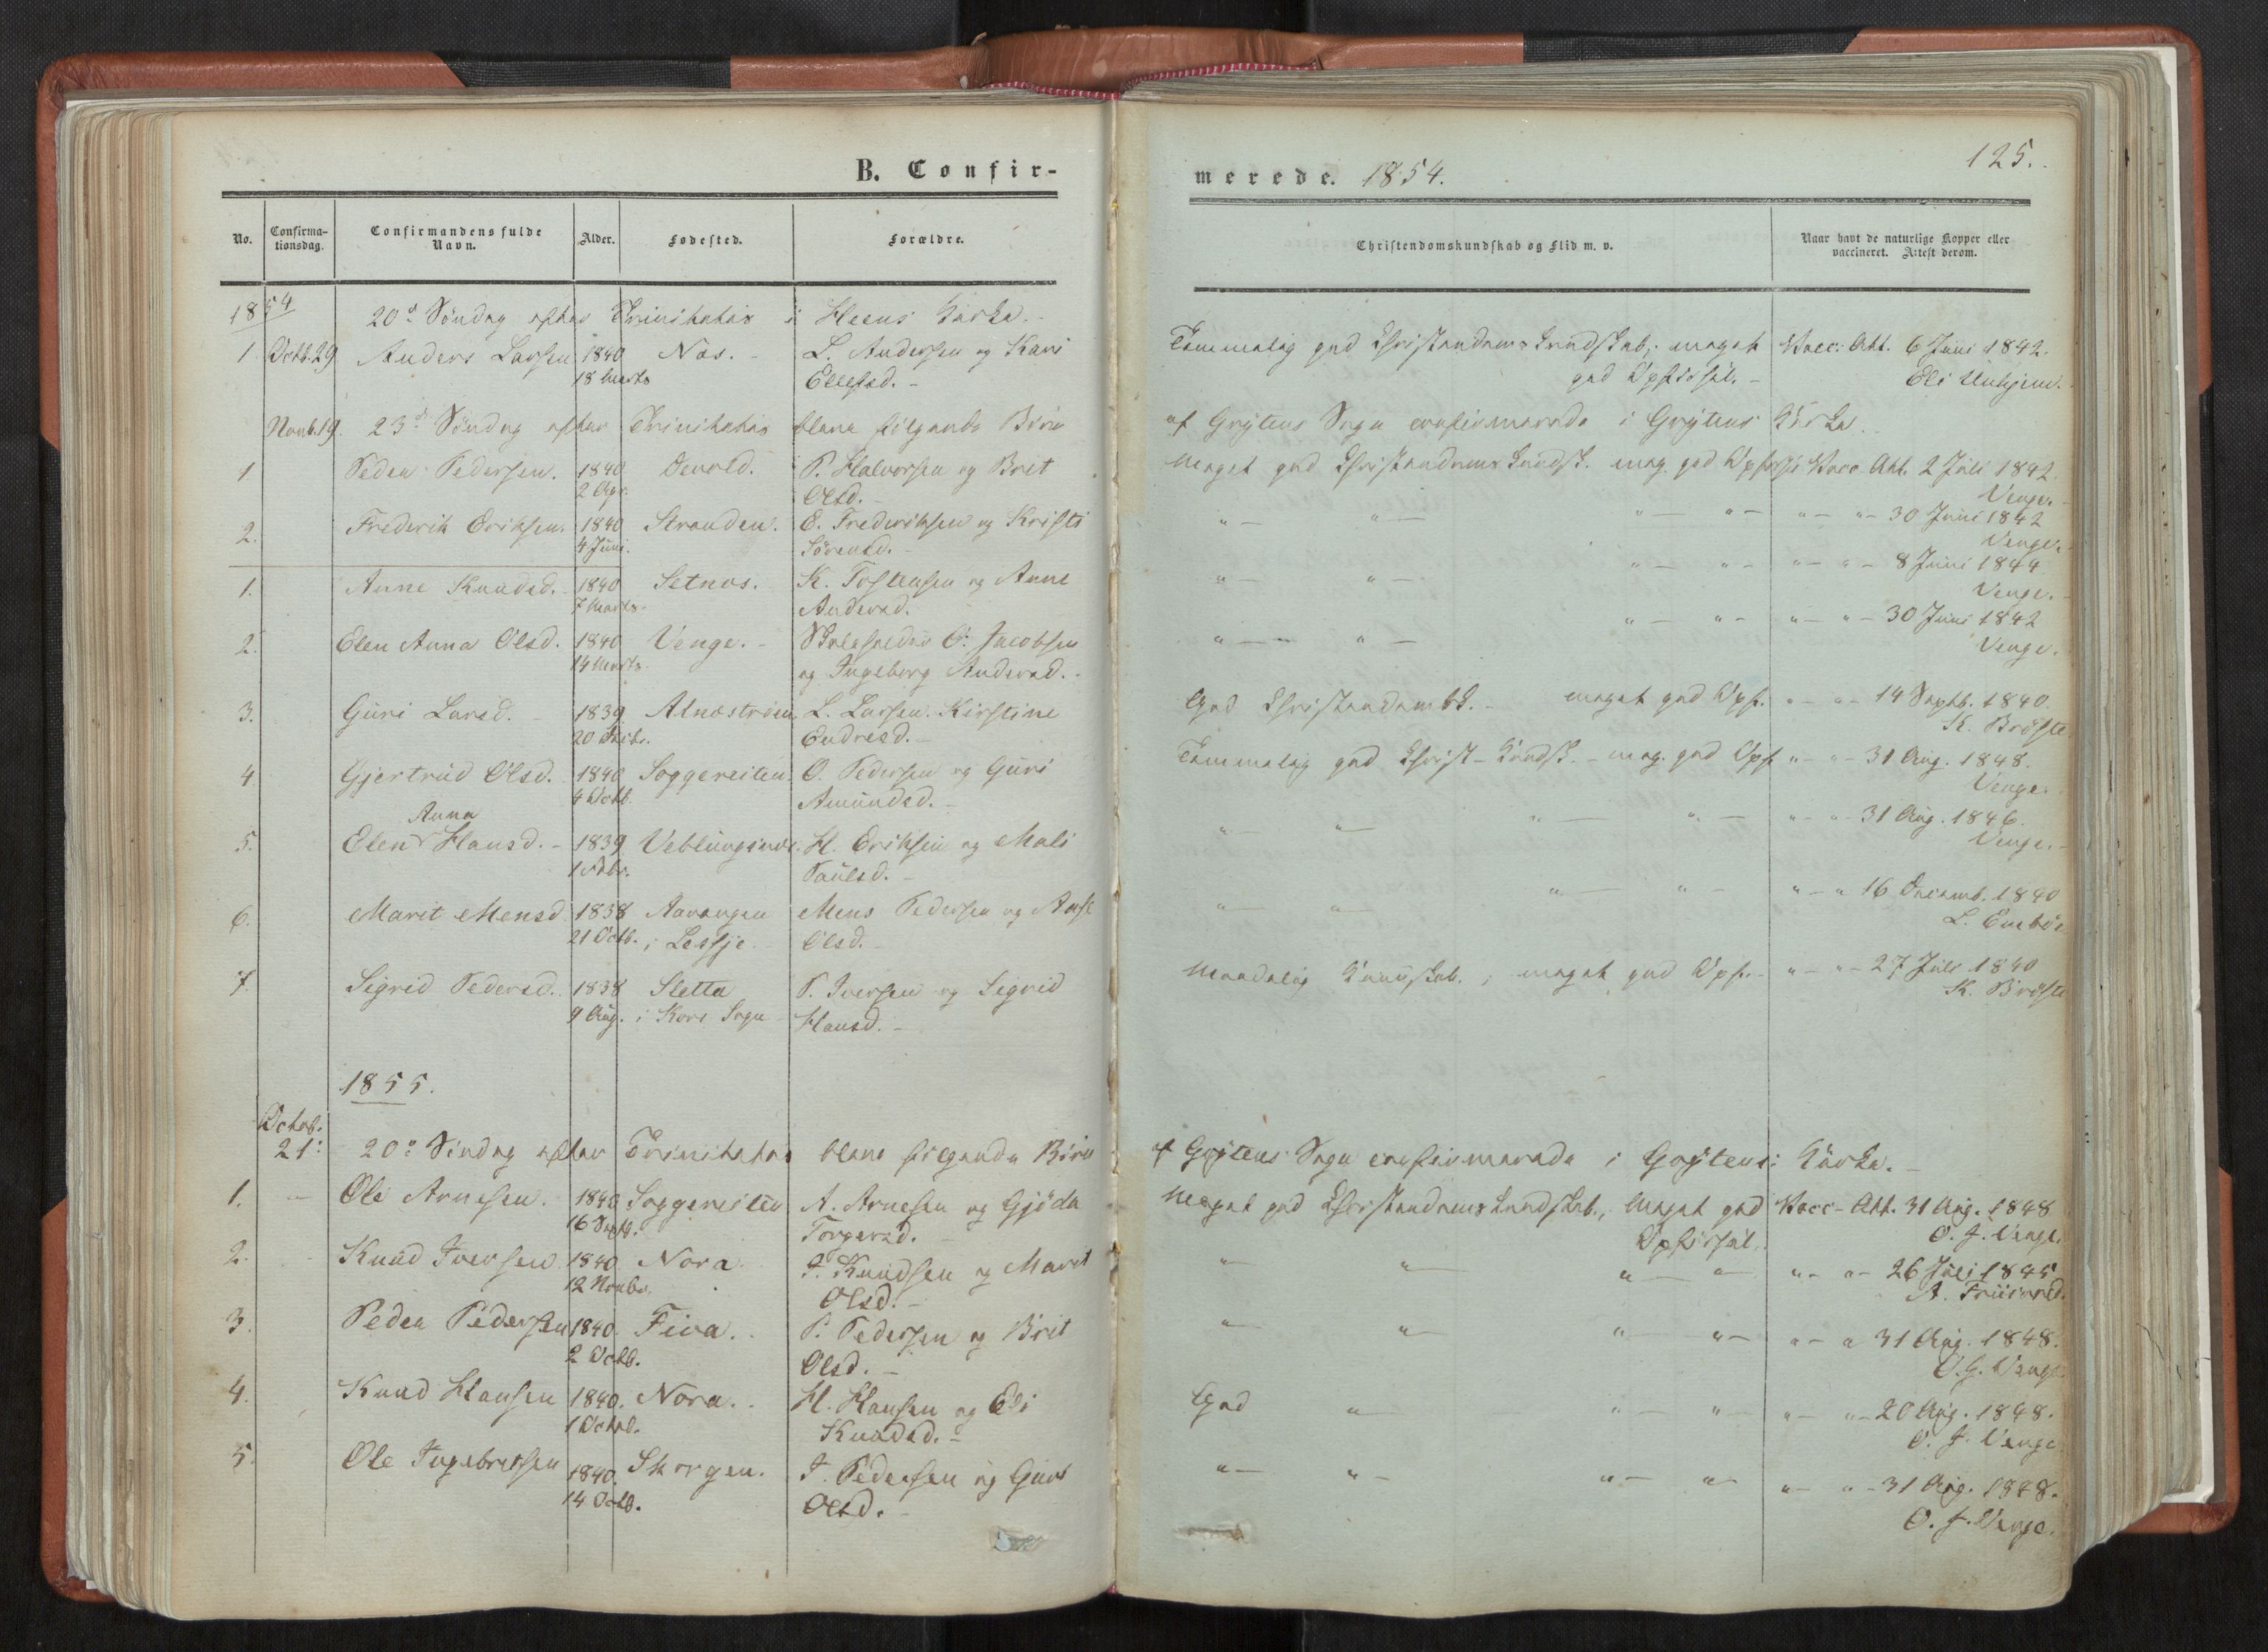 B. Confir-
No. Confirma-tionsdag. Confirmandens fulde Navn. Alder. Fødested. Forældre.
1854 20d Søndag efter Trinitatis i Heens Kirke.
1 Octb. 29 Anders Larsen 1840 Nes. L. Andersen og Kari
18 Marts Ellefsd.
Novb. 19. 23d Søndag efter Trinitatis bleve følgende Børn
1 Peder Pedersen. 1840 Devold. P. Halvorsen og Brit
2 Apr. Olsd.
2. Frederik Eriksen. 1840 Stranden. E. Frederiksen og Kristi
4 Juni. Sørensd.
1. Anne Knudsd. 1840 Setnes. K. Tostensen og Anne
7 Marts Andersd.
2. Elen Anna Olsd. 1840 Venge. O. Jacobsen
14 Marts. og Ingeborg Andersd.
3. Guri Larsd. 1839 L. Larsen Kirstine
20 Endresd.
4. Gjertrud Olsd. 1840 Soggereiten. O. Pedersen og Guri
4 Octb. Amundsd.
Anna
5. Elen Hansd. 1839 Veblungsnæs. H. Eriksen og Mali
Paulsd.
6. Marit Mensd. 1838 Mens Pedersen og
21 Octb. i Lessje Olsd.
7. Sigrid Pedersd. 1838 Sletta P. Iversen og Sigrid
9 Aug. i Kors Sogn Hansd.
1855.
Octob.
21: 20d Søndag efter Trinitatis bleve følgende Børn
1. Ole Arnesen. 1840 Soggereiten A. Arnesen og Gjøda
16 Septb. Torgersd.
2. Knud Iversen 1840 Nora. I. Knudsen og Marit
12 Novbr. Olsd.
3. Peder Pedersen 1840. Fiva. P. Pedersen og Brit
2 Octb. Olsd.
4. Knud Hansen 1840. Nora. H. Hansen og Eli
1 Octob. Knudsd.
5. Ole Ingebretsen 1840. Skorgen. I. Pedersen og Guri
14 Octb. Olsd.
merede. 1854. 125.
Christendomskundskab og Flid m. v. Naar havt de naturlige Kopper eller vaccineret. Attest derom.
Temmelig god Christendoms Kundskab; meget Vacc: Att. 6 Juni 1842.
god Opførsel. Eli Unhjem.
af Grytens Sogn confirmerede i Grytens Kirke.
Meget god Christendoms Kundsk. meg. god Opførs. Vacc. Att. 2 Juli 1842
Venge.
" " " " " " 30 Juni 1842
Venge.
" " " " " " 8 Juni 1844
Venge.
" " " " " " 30 Juni 1842
Venge.
God Christendomsk. meget god Opf. " " 14 Septb. 1840.
K. Brøste
Temmelig god Christ. Kundsk. meg. god Opf. " " 31 Aug. 1848.
Venge.
" " " " " " 31 Aug. 1846.
Venge.
" " " " " " 16 Decemb. 1840
L. Enebøe
Maadelig Kundskab; meget god Opf. " " 27 Juli 1840
K. Brøste
af Grytens Sogn confirmerede i Grytens Kirke.
Meget god Christendoms Kundskab, Meget god Vacc. Att. 31 Aug. 1848
Opførsel. O. J. Venge.
" " " " " " 26 Juli 1845
" " " " " " 31 Aug. 1848.
O. J. Venge.
God " " " " " 20 Aug. 1848.
O. J. Venge
" " " " " " 31 Aug. 1848.
O. J. Venge.